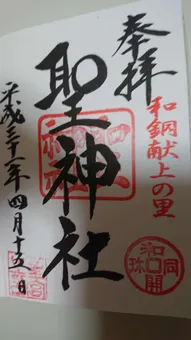 奉拝
和銅献上の里
聖神社
平成三十一年四月十五日
和同開珎